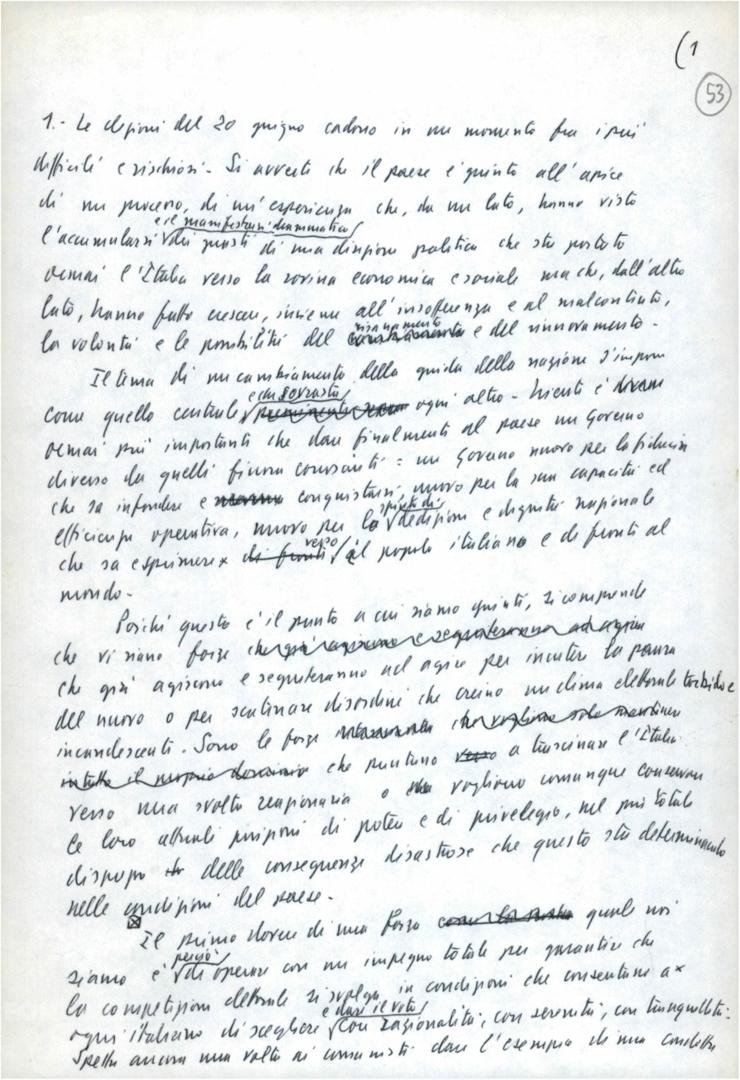 (1
53
1.- Le elezioni del 20 giugno cadono in un momento fra i più
difficili e rischiosi. Si avverte che il paese è giunto all'apice
di un processo, di un'esperienza che, da un lato, hanno visto
e il manifestarsi drammatico
l'accumularsi dei guasti di una direzione politica che sta portato
ormai l'Italia verso la rovina economica e sociale ma che, dall'altro
lato, hanno fatto crescere, insieme all'insofferenza e al malcontento,
risanamento
la volontà e le possibilità del e del rinnovamento.
Il tema di un cambiamento della guida della nazione s'impone
e che sovrasta
come quello centrale ogni altro. Niente è
ormai più importante che dare finalmente al paese un Governo
diverso da quelli finora conosciuti: un Governo nuovo per la fiducia
che sa infondere e conquistarsi, nuovo per la sua capacità ed
spirito di
efficienza operativa, nuovo per la dedizione e dignità nazionale
verso
che sa esprimere di fronte il popolo italiano e di fronte al
mondo.
Poiché questo è il punto a cui siamo giunti, si comprende
che vi siano forze che già agiscono e seguiteranno ad agire
che già agiscono e seguiteranno ad agire per incutere la paura
del nuovo o per scatenare disordini che creino un clima elettorale torbido e
incandescente. Sono le forze che vogliono solo mantenere
che puntano verso a trascinare l'Italia
verso una svolta reazionaria o vogliono comunque conservare
le loro attuali posizioni di potere e di privilegio, nel più totale
dispregio delle conseguenze disastrose che questo sta determinando
nelle condizioni del paese.
Il primo dovere di una forza quale noi
perciò
siamo è di operare con un impegno totale per garantire che
la competizione elettorale si svolga in condizioni che consentano a
e dare il voto
ogni italiano di scegliere con razionalità, con serenità, con tranquillità.
Spetta ancora una volta ai comunisti dare l'esempio di una condotta